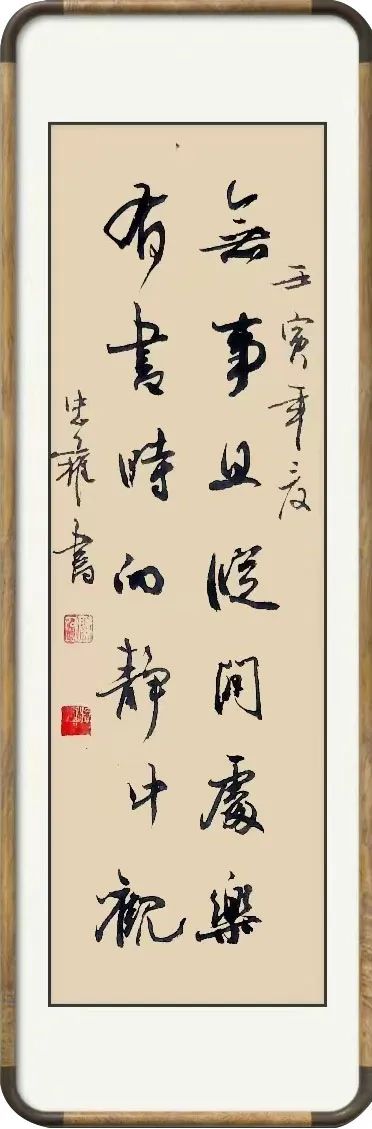 壬寅年夏
無事且從閒處樂
有書時向靜中觀
忠 書